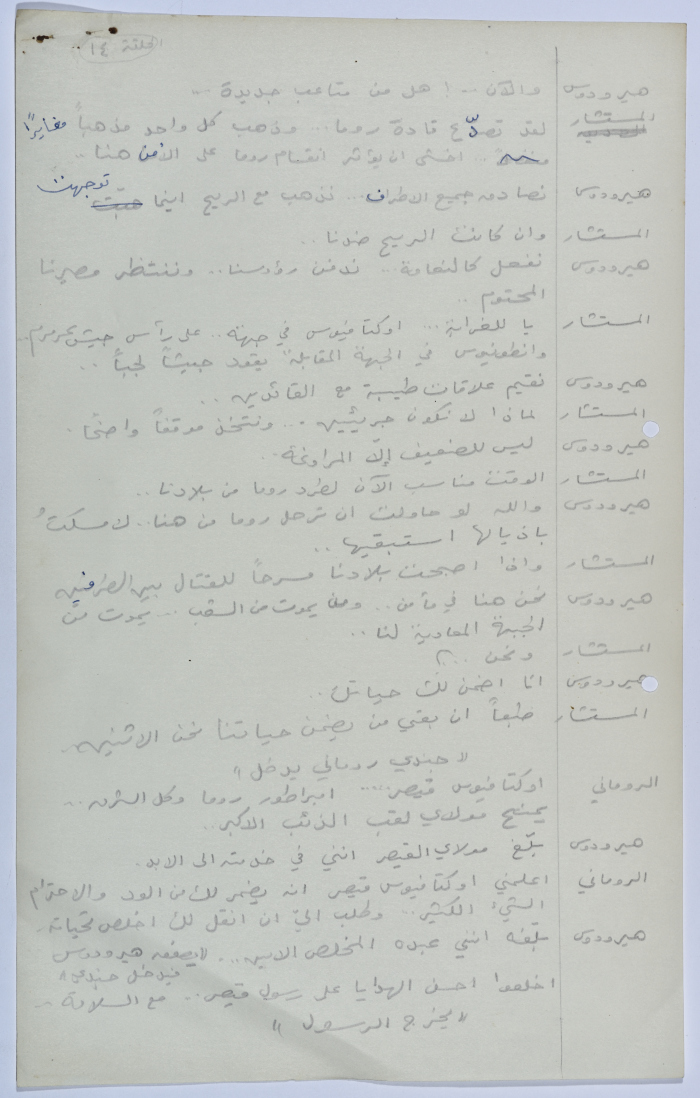 الحلقة ١٤
هيرودوس والآن .. ! هل من متاعب جديدة ...
المستشار لقد تصدّع قادة روما ... وذهب كل واحد مذهباً مغايرًا
.. اخشى ان يؤثر انقسام روما على الأمن هنا ..
هيرودوس نصادق جميع الاطراف ... نذهب مع الريح اينما توجهت
المستشار وان كانت الريح ضدنا ..
هيرودوس نفعل كالنعامة ... ندفن رؤوسنا .. وننتظر مصيرنا
المحتوم ..
المستشار يا للغرابة ... اوكتافيوس في جهة .. على رأس جيش عرمرم ..
وانطونيوس في الجهة المقابلة يقود جيشاً لجباً ..
هيرودوس نقيم علاقات طيبة مع القائدين ..
المستشار لماذا لا نكون جريئين .. ونتخذ موقفاً واضحًا .
هيرودوس ليس للضعيف إلّا المراوغة ..
المستشار الوقت مناسب الآن لطرد روما من بلادنا ..
هيرودوس والله لو حاولت ان ترحل روما من هنا .. لامسكتُ
باذيالها استبقيها ..
المستشار واذا اصبحت بلادنا مسرحاً للقتال بين الطرفين
هيرودوس نحن هنا في مأمن .. ومن يموت من الشعب ... يموت من
الجبهة المعادية لنا ..
المستشار ونحن ...؟
هيرودوس انا اضمن لك حياتك ..
المستشار طبعاً ان بقي من يضمن حياتنا نحن الاثنين ..
" جندي روماني يدخل "
الروماني اوكتافيوس قيصر .... امبراطور روما وكل الشرق ..
يمنح مولاي لقب الذئب الاكبر ..
هيرودوس بلّغ مولاي القيصر انني في خدمته الى الابد .
الروماني اعلمني اوكتافيوس قيصر انه يضمر لك من الود والاحترام
الشيء الكثير .. وطلب اليّ ان انقل لك اخلص تحياته ..
هيرودوس بلّغه انني عبده المخلص الامين ... " يصفق هيرودوس
فيدخل جندي "
اخلعوا احسن الهدايا على رسول قيصر .. مع السلامة ..
" يخرج الرسول "